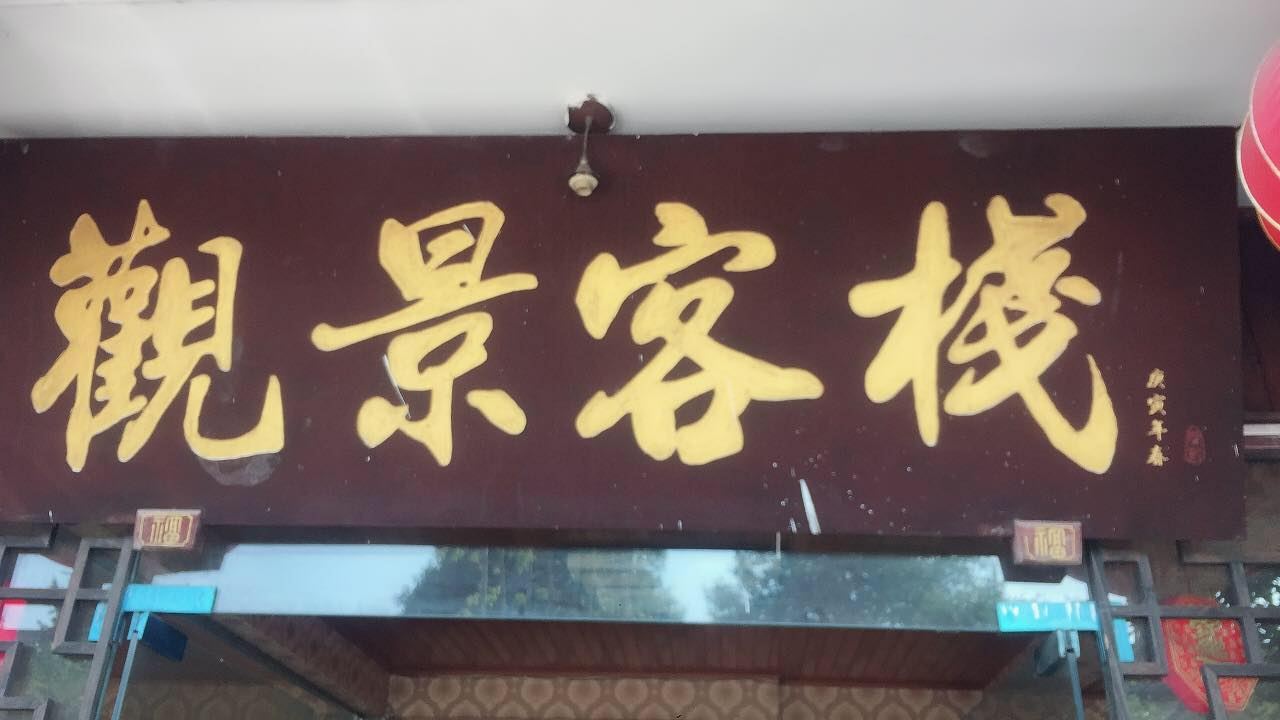 觀景客棧
庚寅年春
福
福